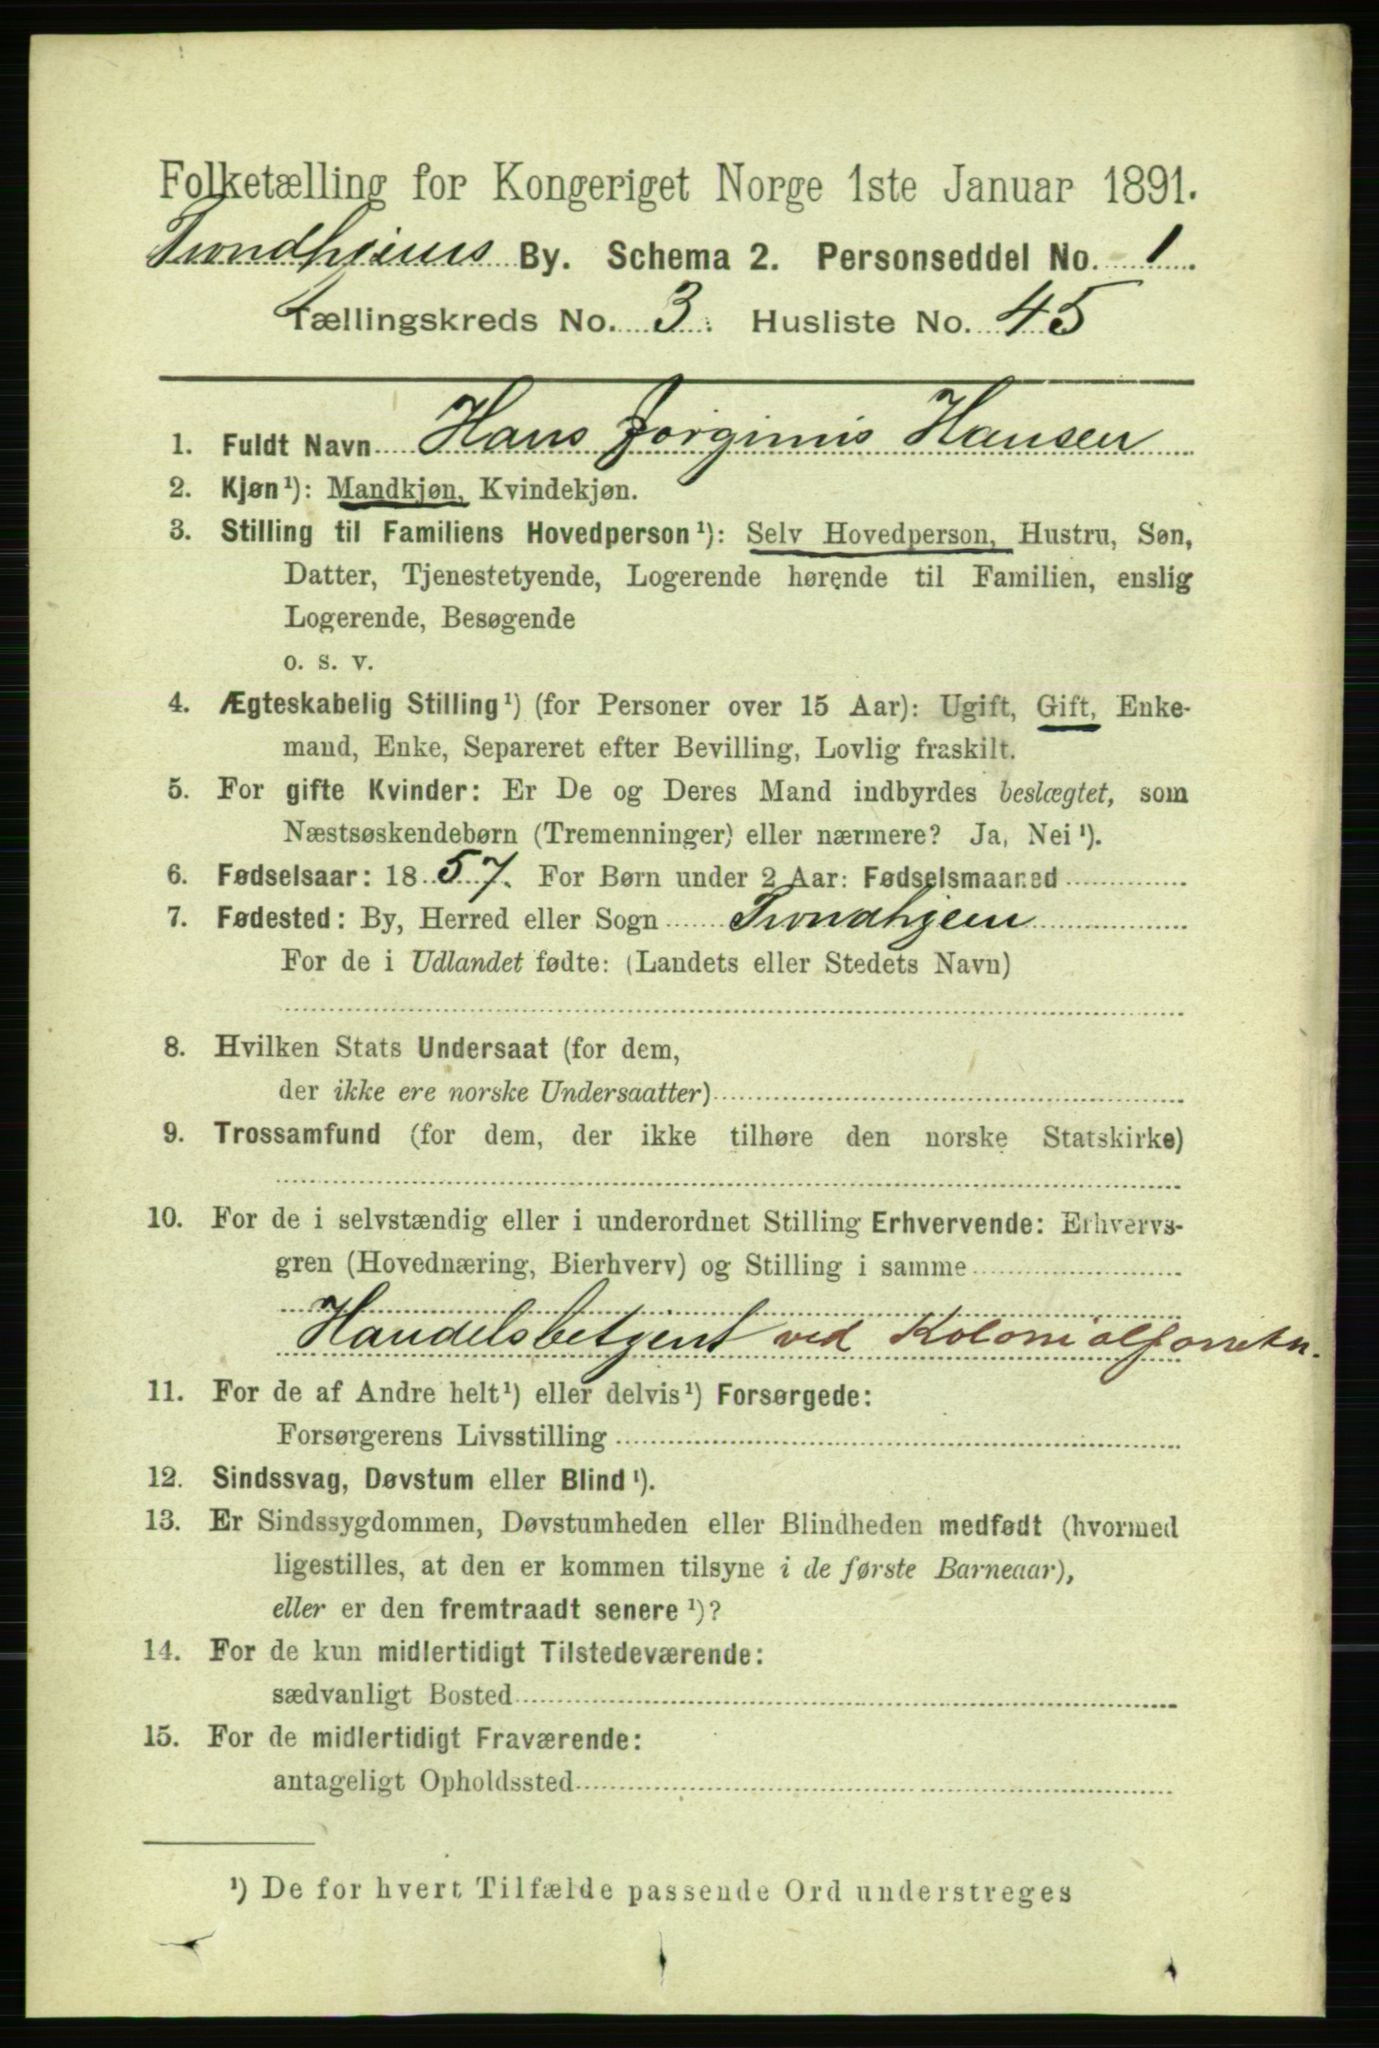 Folketælling for Kongeriget Norge 1ste Januar 1891.
Trondhjems By. Schema 2. Personseddel No. 1.
Tællingskreds No. 3. Husliste No. 45
1. Fuldt Navn Hans Jørginus Hansen
2. Kjøn¹): Mandkjøn, Kvindekjøn.
3. Stilling til Familiens Hovedperson¹): Selv Hovedperson, Hustru, Søn,
Datter, Tjenestetyende, Logerende hørende til Familien, enslig
Logerende, Besøgende
o. s. v.
4. Ægteskabelig Stilling¹) (for Personer over 15 Aar): Ugift, Gift, Enke-
mand, Enke, Separeret efter Bevilling, Lovlig fraskilt.
5. For gifte Kvinder: Er De og Deres Mand indbyrdes beslægtet, som
Næstsøskendebørn (Tremenninger) eller nærmere? Ja, Nei¹).
6. Fødselsaar: 1857. For Børn under 2 Aar: Fødselsmaaned
7. Fødested: By, Herred eller Sogn Trondhjem
For de i Udlandet fødte: (Landets eller Stedets Navn)
8. Hvilken Stats Undersaat (for dem,
der ikke ere norske Undersaatter)
9. Trossamfund (for dem, der ikke tilhøre den norske Statskirke)
10. For de i selvstændig eller i underordnet Stilling Erhvervende: Erhvervs-
gren (Hovednæring, Bierhverv) og Stilling i samme
Handelsbetjent ved Kolonialforretn.
11. For de af Andre helt¹) eller delvis¹) Forsørgede:
Forsørgerens Livsstilling
12. Sindssvag, Døvstum eller Blind¹).
13. Er Sindssygdommen, Døvstumheden eller Blindheden medfødt (hvormed
ligestilles, at den er kommen tilsyne i de første Barneaar),
eller er den fremtraadt senere¹)?
14. For de kun midlertidigt Tilstedeværende:
sædvanligt Bosted
15. For de midlertidigt Fraværende:
antageligt Opholdssted
¹) De for hvert Tilfælde passende Ord understreges